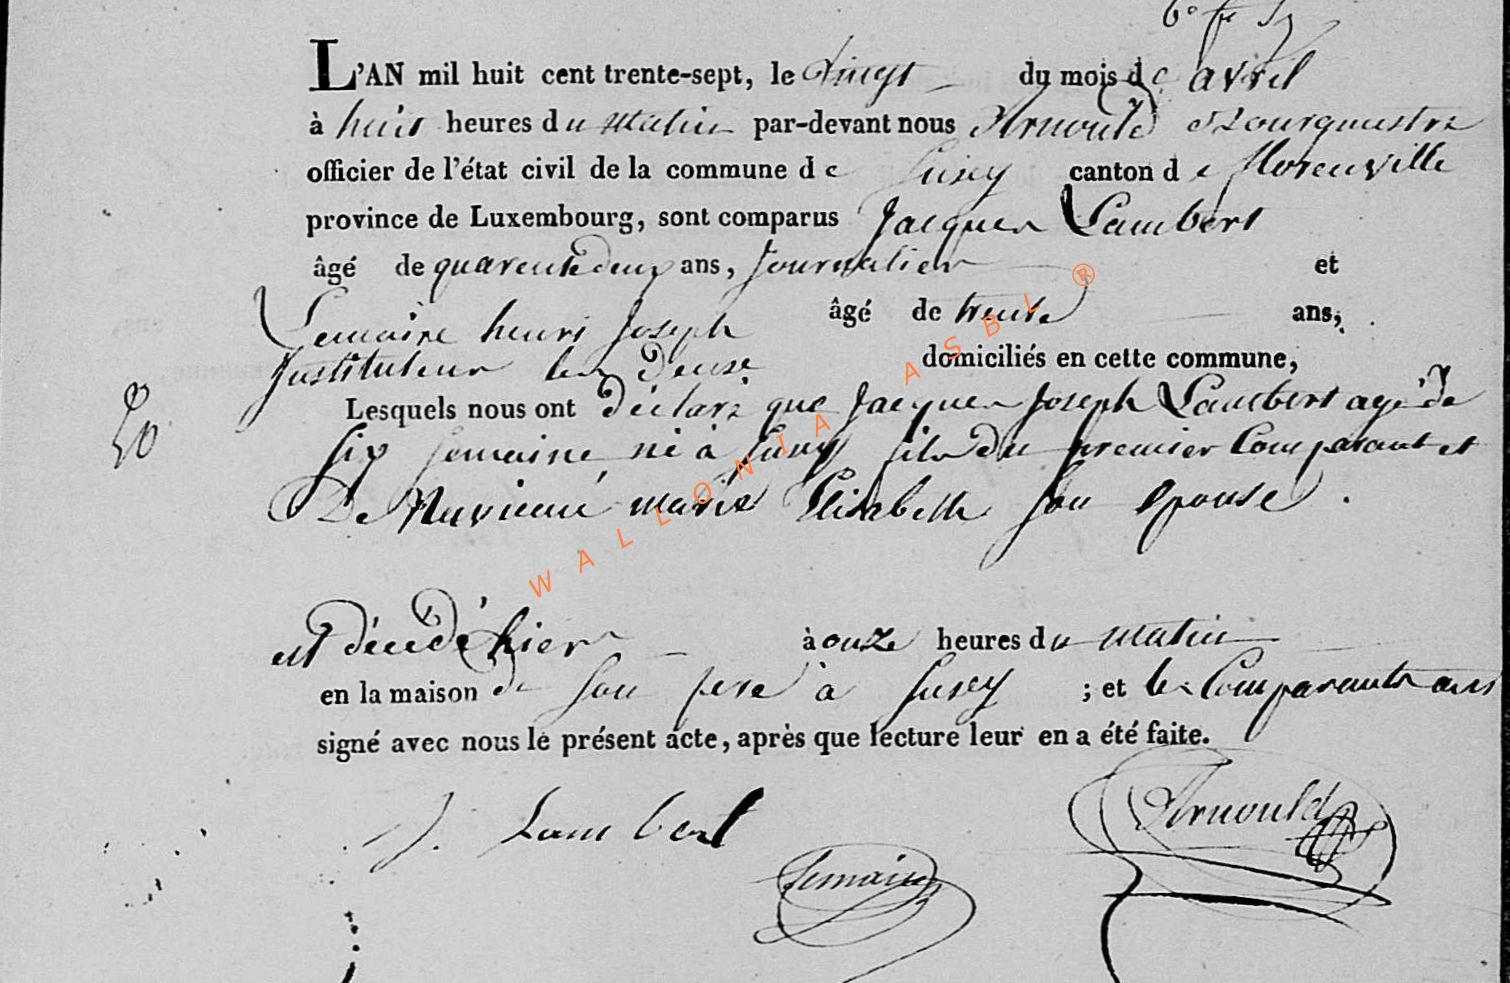 L'AN mil huit cent trente-sept, le vingt du mois de avril
à huit heures du matin par-devant nous Arnould Bourgmestre
officier de l'état civil de la commune de Suxy canton de florenville
province de Luxembourg, sont comparus Jacques Lambert
âgé de quarente deux ans, Journalier et
Lemaire henri Joseph âgé de trente ans,
Instituteur les Deux domiciliés en cette commune,
Lesquels nous ont déclaré que Jacques Joseph Lambert agé de
six semaine né à Suxy fils du premier Comparant et
De marie Elisabeth son epouse.
est décédé hier à onze heures du matin
en la maison de son pere à Suxy ; et les Comparants ont
signé avec nous le présent acte, après que lecture leur en a été faite.
J. Lambert
Lemaire
Arnould
WALLONIA ASBL ®